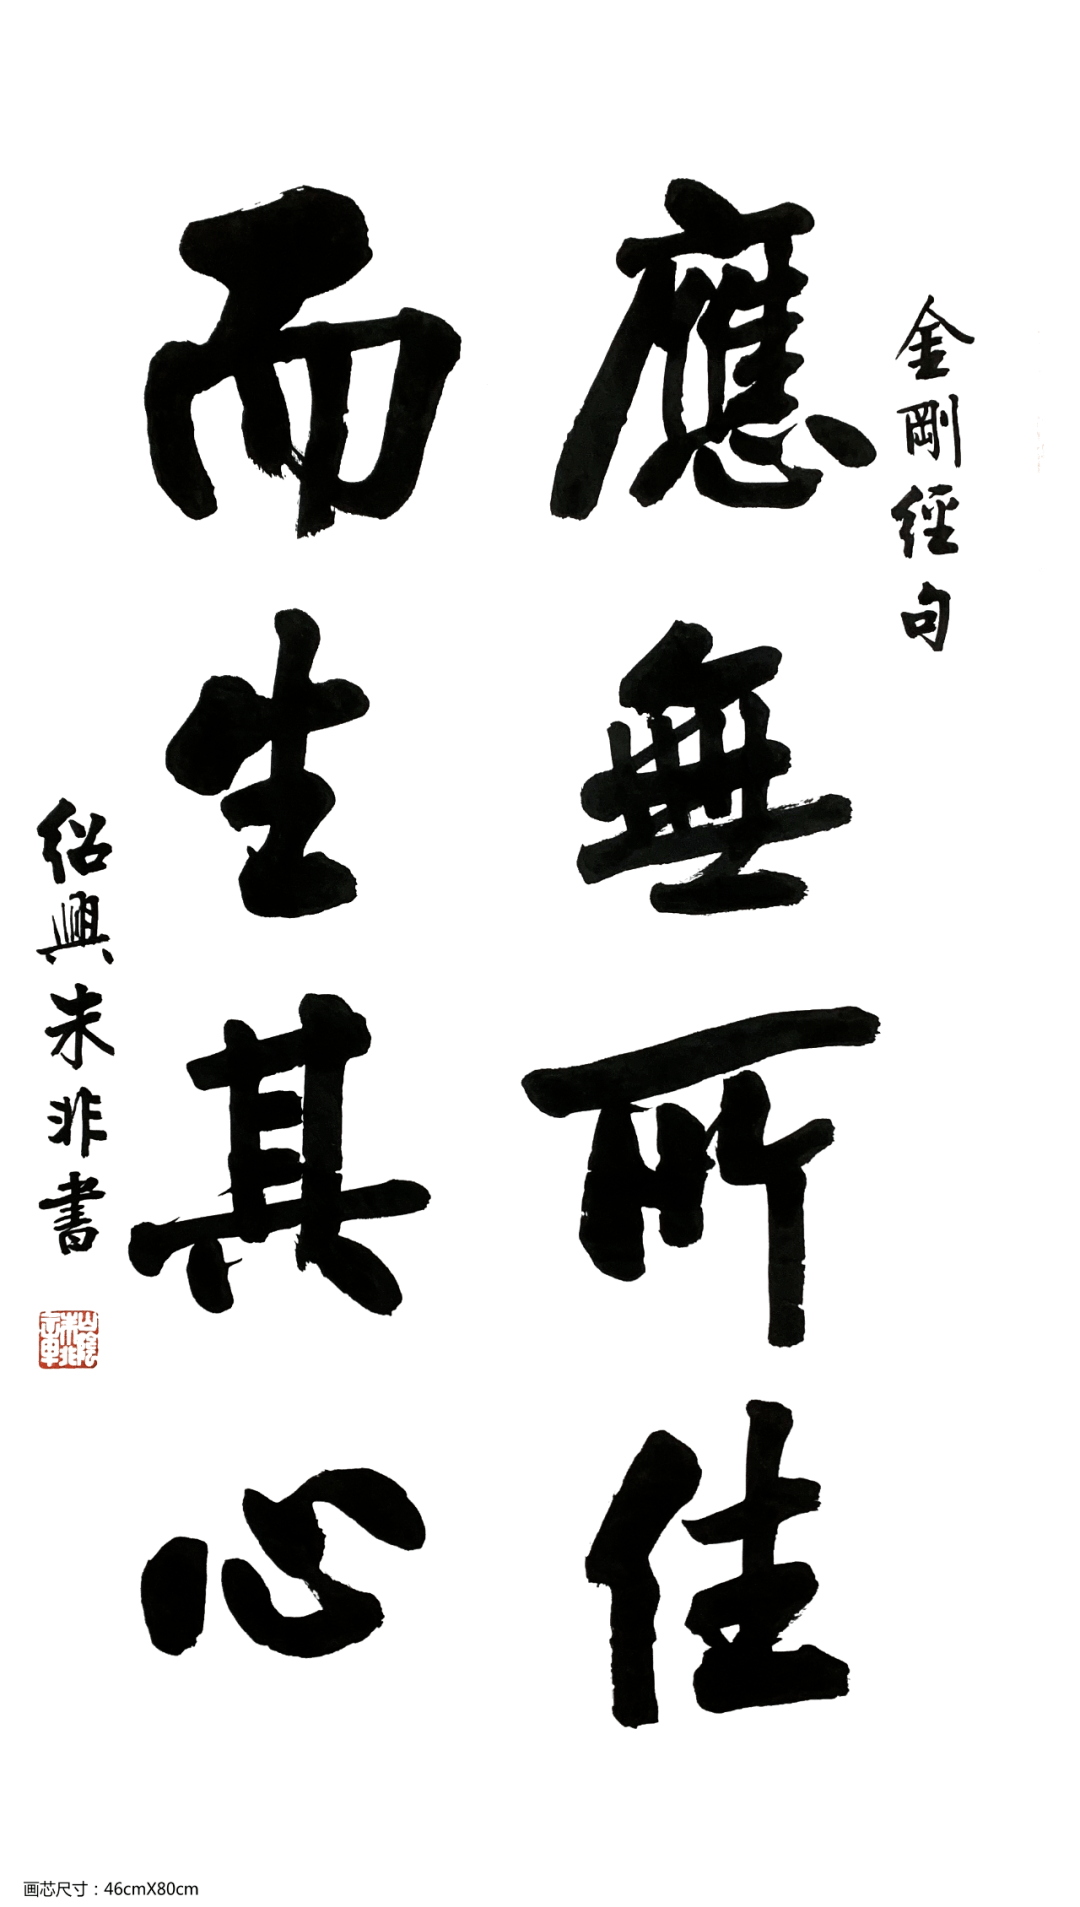 金剛經句
應無所住
而生其心
紹興朱非書
画芯尺寸：46cmX80cm